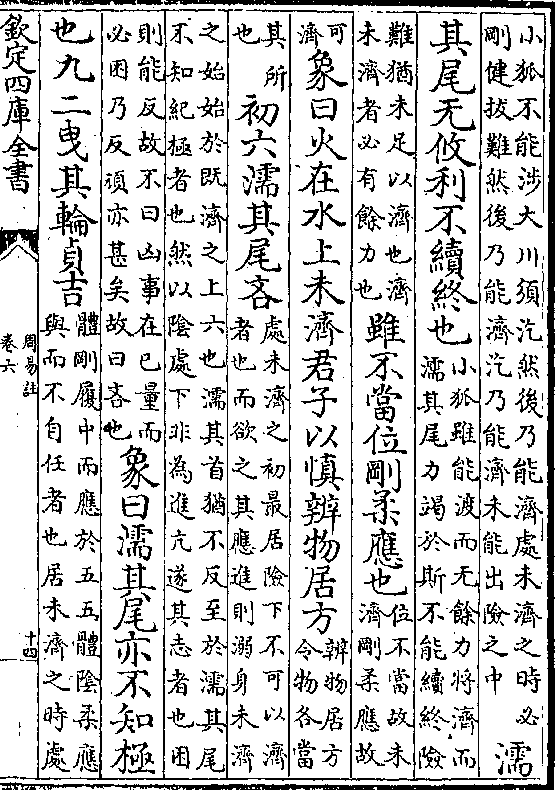 小狐不能涉大川須汔然後乃能濟處未濟之時必
剛健拔難然後乃能濟汔乃能濟未能出險之中
濡
其尾无攸利不續終也
小狐雖能渡而无餘力將濟而
濡其尾力竭於斯不能續終險
難猶未足以濟也濟
未濟者必有餘力也
雖不當位剛柔應也
位不當故未
濟剛柔應故
可
濟
象曰火在水上未濟君子以慎辨物居方
辨物居方
令物各當
其所
也
初六濡其尾吝
處未濟之初最居險下不可以濟
者也而欲之其應進則溺身未濟
之始始於既濟之上六也濡其首猶不反至於濡其尾
不知紀極者也然以陰處下非為進亢遂其志者也困
則能反故不曰凶事在已量而
必困乃反頑亦甚矣故曰吝也
象曰濡其尾亦不知極
也九二曳其輪貞吉
體剛履中而應於五五體陰柔應
與而不自任者也居未濟之時處
欽定四庫全書
周易註
卷六
十四